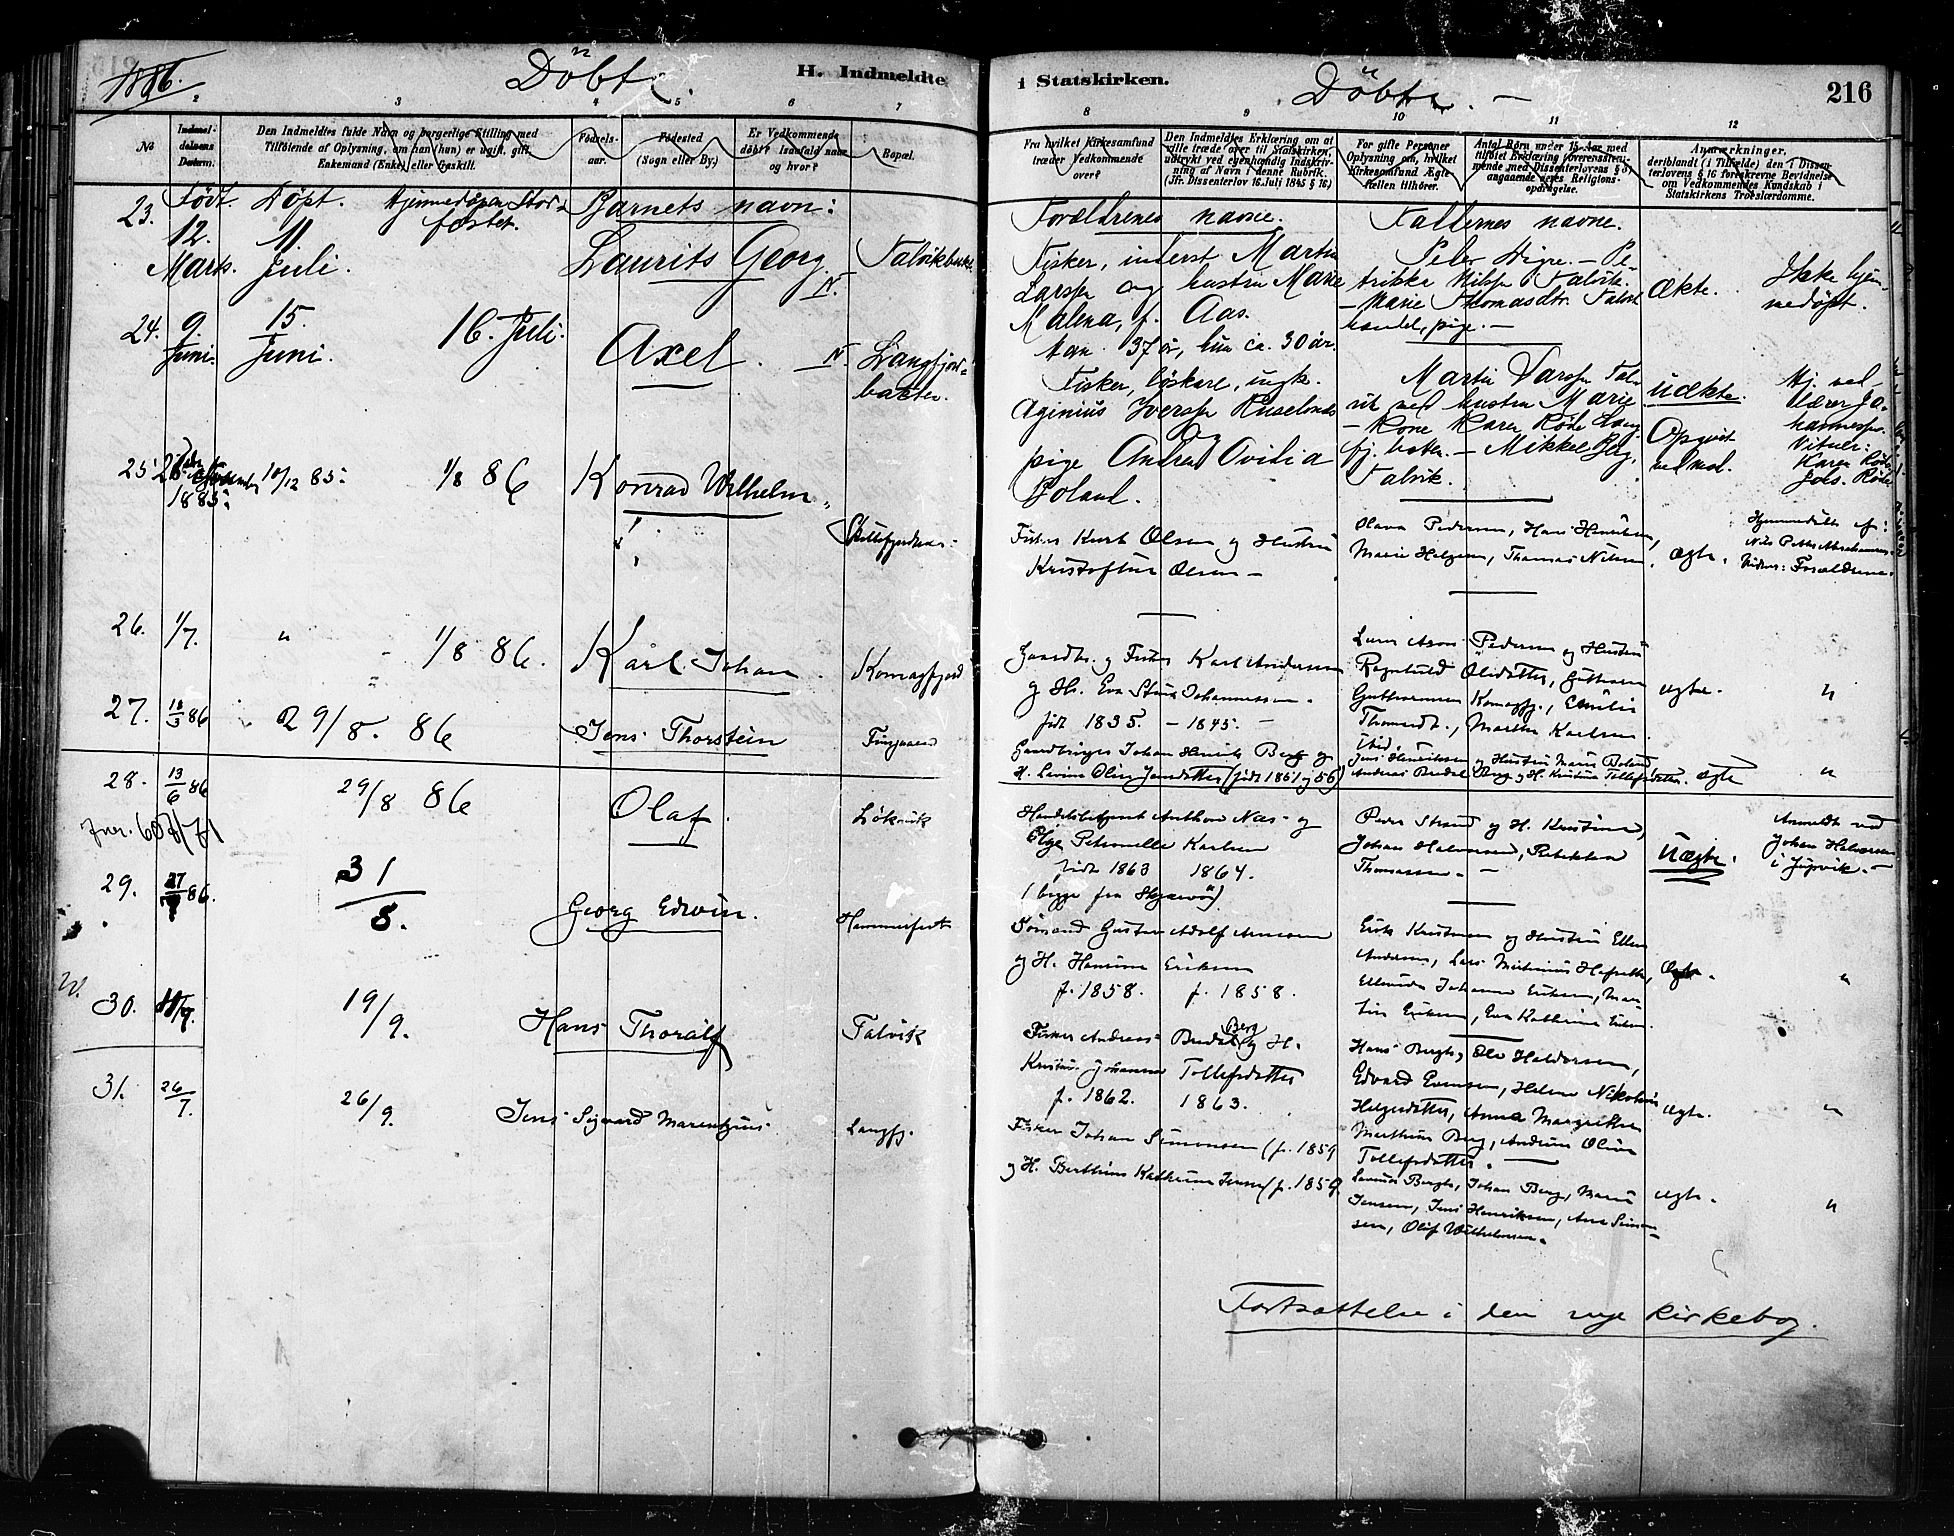 1886.
Döbte.
H. Indmeldte
2 3 4 5 6 7
No
Indmeldelsens Datum.
Den Indmeldtes fulde Navn og borgerlige Stilling med
Tilføiende af Oplysning, om han (hun) er ugift, gift,
Enkemand (Enke) eller fraskilt.
Fødselsaar.
Fødested
(Sogn eller By.)
Er Vedkommende
døbt? Isaafald naar
og hvor?
Bopæl.
23. Født Døpt. Hjemmedøpen Stadfæstet. Barnets navn:
12. Marts. 11. Juli. Laurits Georg. Talvikbukt.
N.
24. 9. Juni. 15. Juni. 16. Juli. Axel. N. Langfjordbotten.
25. 1885. 10/12 85. 1/8 86 Konrad Wilhelm
Skillefjordnes.
26. 1/7. " 1/8 86. Karl Johan Komagfjord
27. 86 29/8. 86 Jens Thorstein
28. 13/6 86 29/8 86 Olaf. Løkvik
29. 86. 31/8. Georg Edwin. Hammerfest
30. 19/9. Hans Thoralf Talvik
31. 26/7. 26/9. Jens Sigvard Marentzius Langfj.
i Statskirken.
Döbte. —
216
8 9 10 11 12
Fra hvilket Kirkesamfund
træder Vedkommende
over?
Den Indmeldtes Erklæring om at
ville træde over til Statskirken,
udtrykt ved egenhændig Indskrivning af Navn i denne Rubrik.
(Jfr. Dissenterlov 16. Juli 1845 § 16)
For gifte Personer
Oplysning om, hvilket
Kirkesamfund Ægtefællen tilhører.
Antal Børn under 15 Aar med
tilføiet Erklæring (overensstemmende med Dissenterlovens § 8)
angaaende deres Religionsopdragelse.
Anmærkninger,
deriblandt (i Tilfælde) den i Dissenterlovens § 16 foreskrevne Bevidnelse
om Vedkommendes Kundskab i
Statskirkens Troeslærdomme.
Forældrenes navne. Faddernes navne.
Fisker, inderst Martin
Larssen og hustru Marie
Malena, f. Aas.
Man 37 år, hun ca. 30 år.
Peter Nigre. — Petrikke Nilssen Talvik.
— Marie Thomasdtr. Talvik
handel, pige. —
Ækte. Ikke hjemmedøpt.
Fisker, löskarl, ungk.
Aginius Iverssen
og
pige Andrea Ovidia
Boland.
Martin Larssen Talvik med hustru Marie
— Kone Karen Röde Langfj. botten. — Mikkel Berg,
Talvik.
Uækte.
Hj. ved
Karen Röde
Johs. Röde
Fisker Kurt Olsen og Hustru
Kristoffine Olsen —
Olava Pedersen, Hans Henriksen,
Marie Helgesen, Thomas Nilsen.
Ægte.
Hjemmedøbt af:
Nils Petter Abrahamsen.
Vidner: Forældrene.
Gaardbr. og Fisker Karl Andersen
og H. Eva Stina Johannesen.
født 1835. — 1845. —
Lars Aron Pedersen og Hustru
Ragnhild Olsdatter,
Komagfj., Emilie
Thomasdtr., Marthe Karlsen
ibid.
ægte. "
Gaardbruger Johan Henrik Berg og
H. Levine Oline Jensdatter (født 1861 og 56)
Jens Henriksen og Hustru Maria Boland,
Andreas Bredal Berg og H. Kristine Tollefsdatter.
Ægte "
Anthon Næs og
Olga Petronelle Karlsen
født 1863 1864.
(begge fra Skjervö)
Peder Strand og H. Kristine,
Johan Halvorsen, Rebekka
Thomassen. —
Uægte.
Anmeldt ved
Johan Halvorsen
Sömand Gustav Adolf Arnesen
og H. Hansine Eriksen
f. 1858. f. 1858.
Erik Kristensen og Hustru Ellen
Andersen, Lars
Johanne Eriksen, Martin Eriksen, Eva Kathrine Eriksen.
Ægte. "
Fisker Andreas Bredal Berg og H.
Kristine Johanna Tollefsdatter
f. 1862. 1863.
Hans Bergh, Ole Haldorsen,
Edvard Evensen, Helene Nikoline
Helgesdatter, Anna Margrethe
Berg, Andrine Oline
Tollefsdatter. —
ægte. "
Fisker Johan Simonsen (f. 1859
og H. Berthine Kathrine Jensen (f. 1859.
Bergh, Johan Berg, Marie
Jensen, Jens Henriksen, Ane Simonsen, Oluf Wilhelmsen.
ægte. "
Fortsættelse i den nye kirkebog.